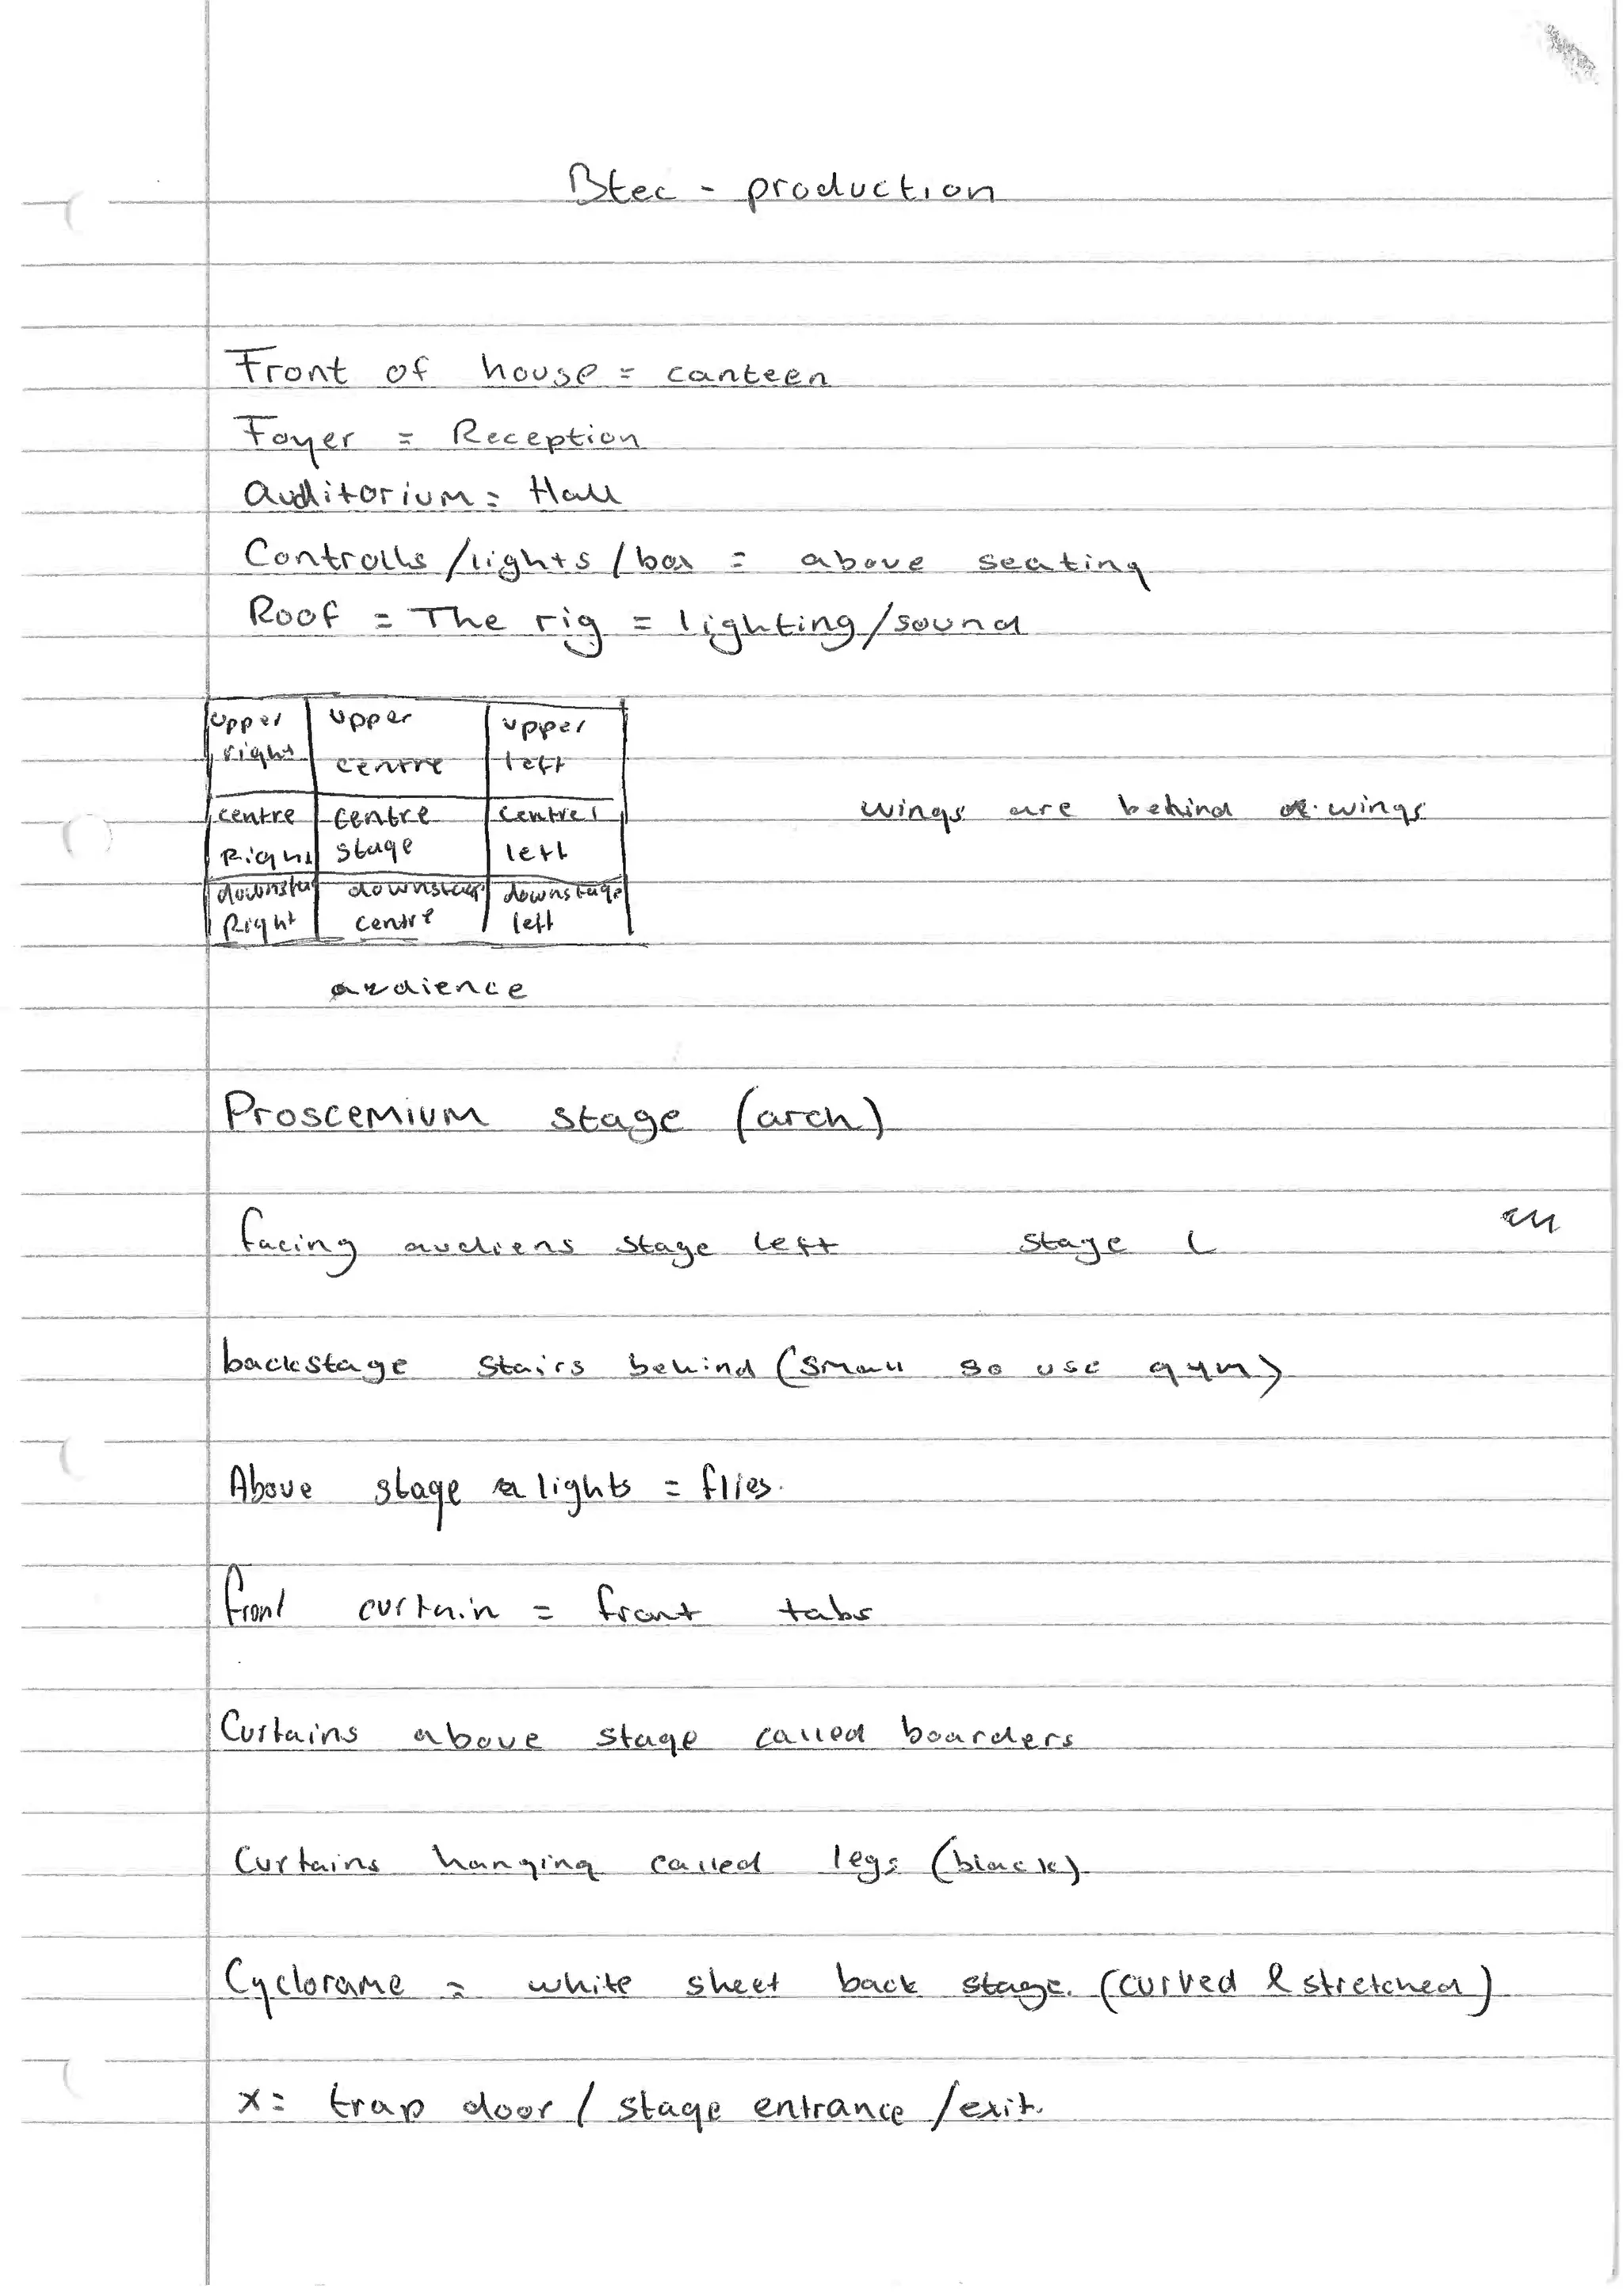 Btec - production
Front of house = canteen
Foyer = Reception
Auditorium = Hall
Controlls/lights/box = above seating
Roof = The rig = lighting/sound
upper right upper centre upper left
centre Right centre stage centre left
downstage Right downstage centre downstage left
wings are behind wings
audience
Proscemium stage (arch)
facing audiens stage left stage L
backstage stairs behind (small so use gym)
Above stage lights = flies.
front curtain = front tabs
Curtains above stage called boarders
Curtains hanging called legs (black)
Cyclorame = white sheet back stage. (curved & stretched)
x = trap door / stage entrance /exit.